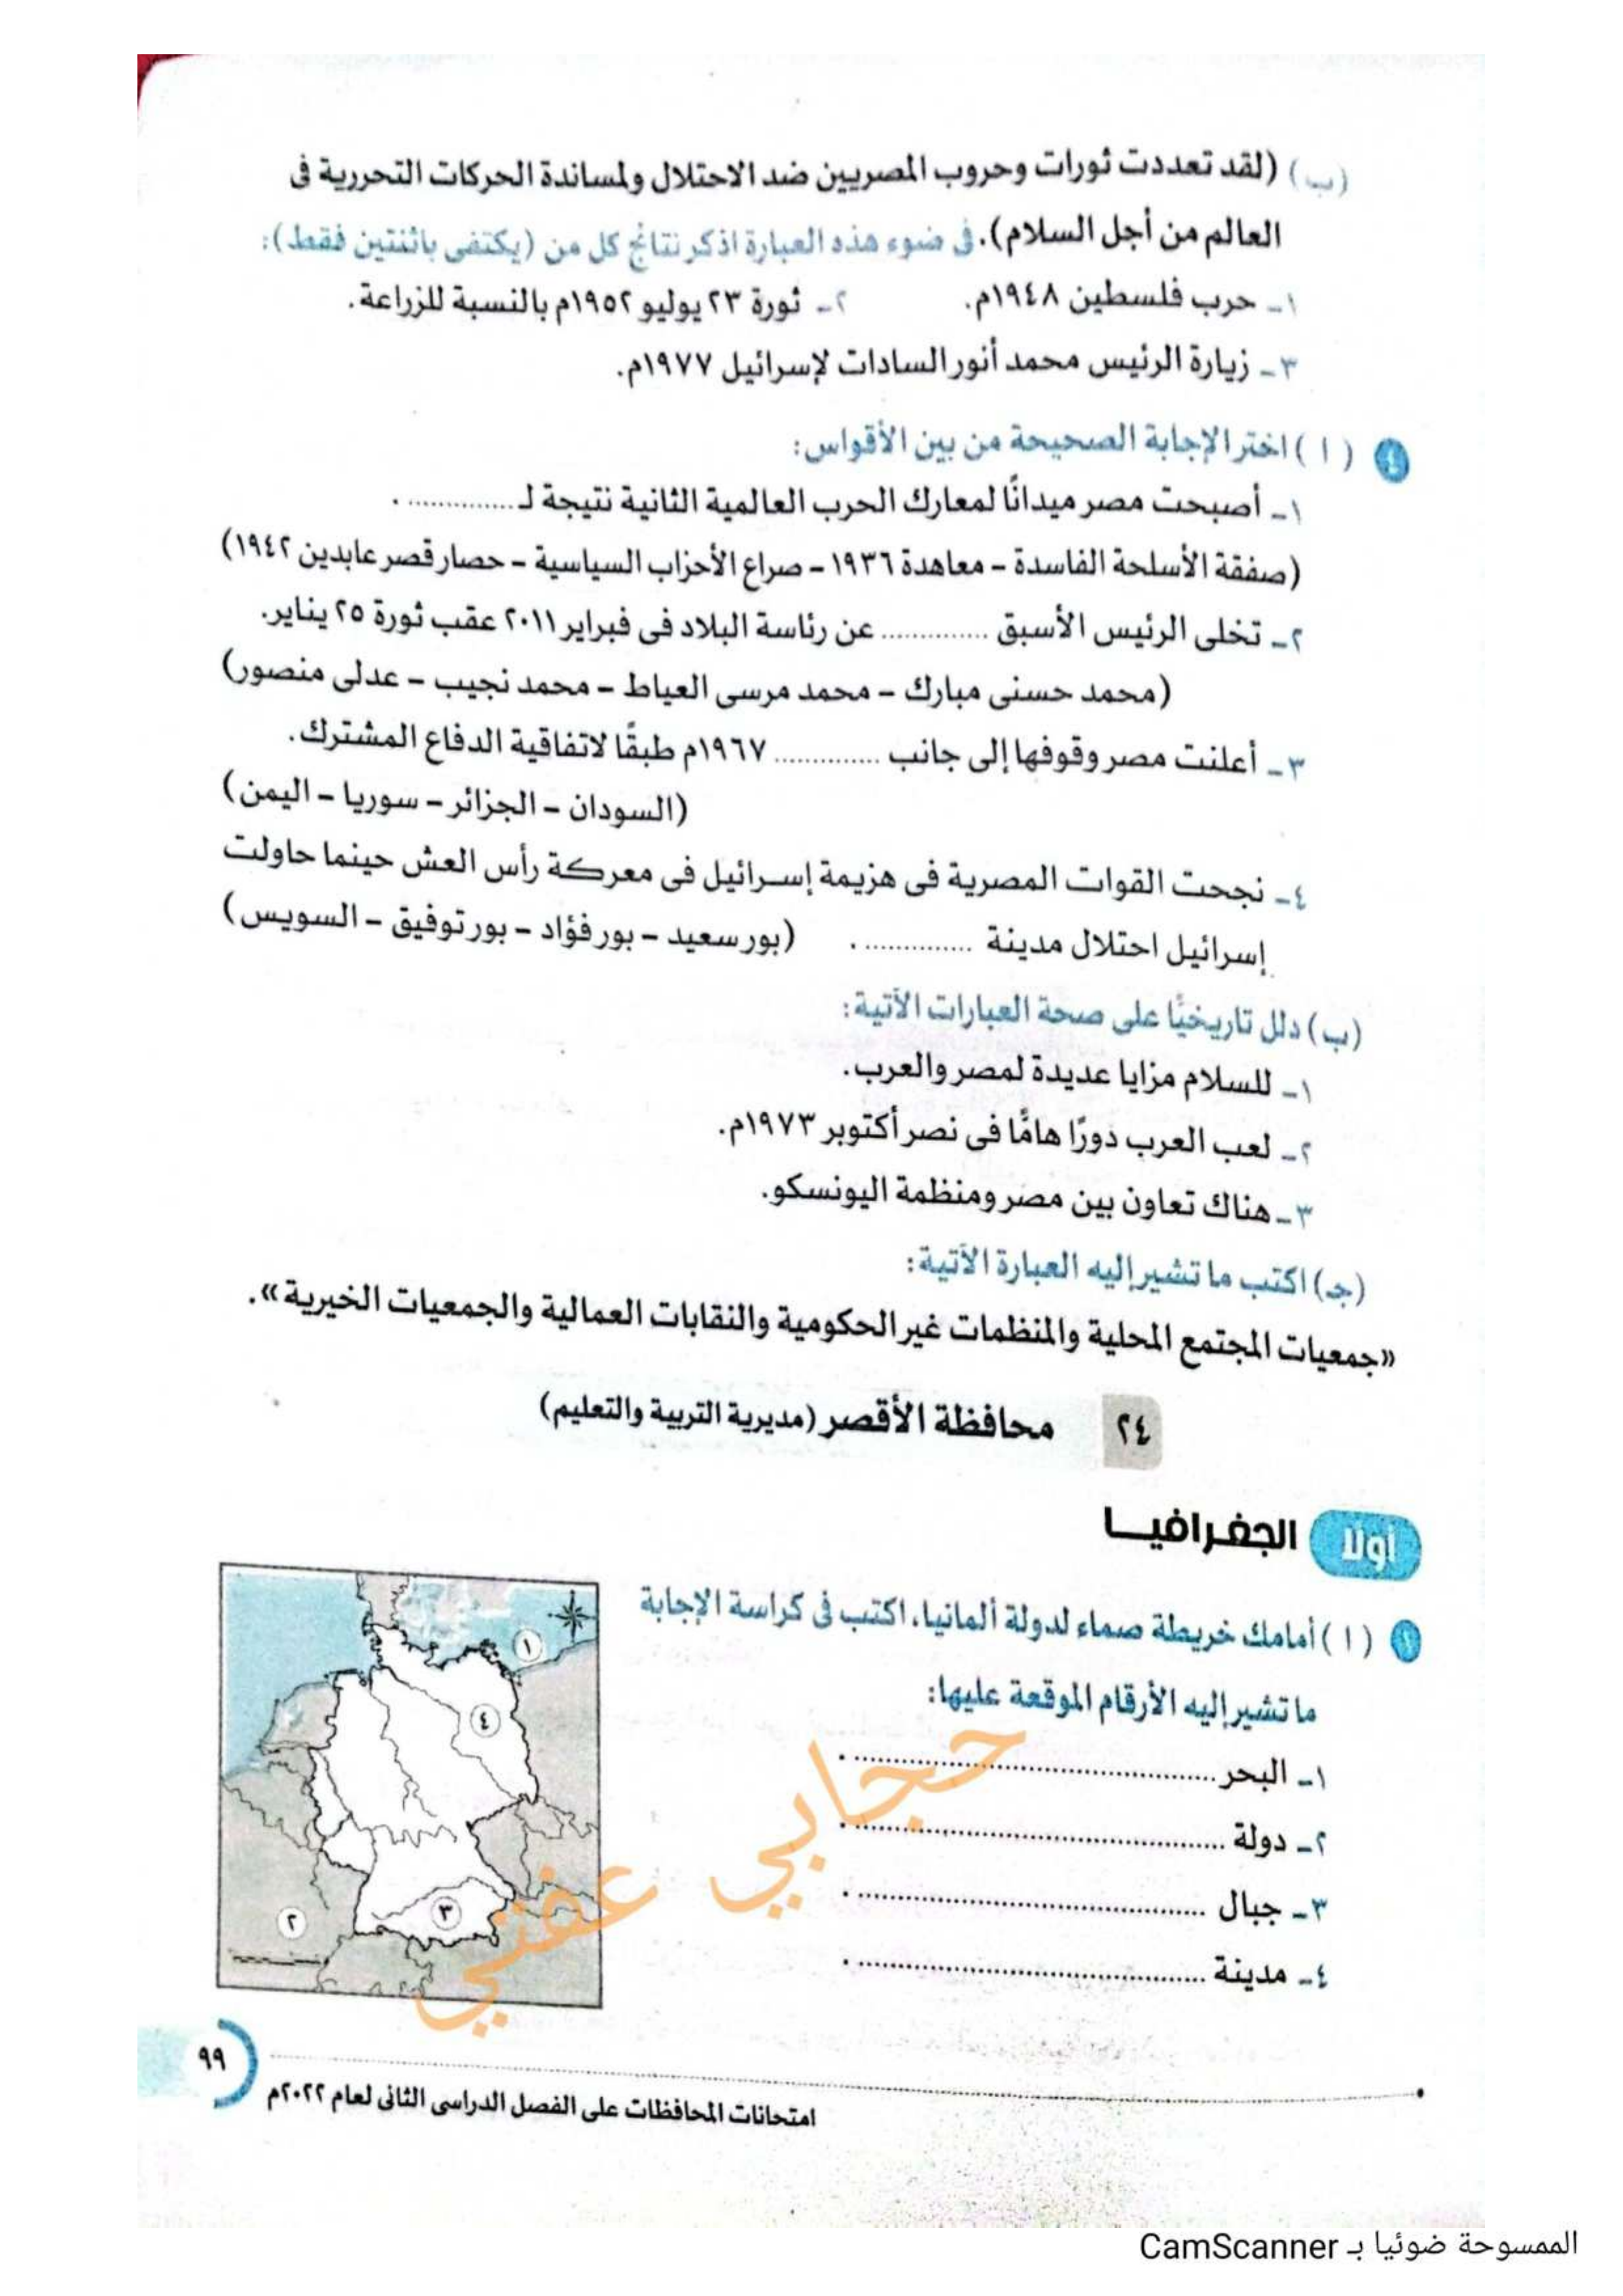 (ب) (لقد تعددت ثورات وحروب المصريين ضد الاحتلال ولمساندة الحركات التحررية فى
العالم من أجل السلام). فى ضوء هذه العبارة اذكر نتائج كل من (يكتفى باثنتين فقط):
١ـ حرب فلسطين ١٩٤٨م. ٢ـ ثورة ٢٣ يوليو ١٩٥٢م بالنسبة للزراعة.
٣ـ زيارة الرئيس محمد أنور السادات لإسرائيل ١٩٧٧م.
٤ (١) اختر الإجابة الصحيحة من بين الأقواس:
١ـ أصبحت مصر ميدانًا لمعارك الحرب العالمية الثانية نتيجة لـ .............. .
(صفقة الأسلحة الفاسدة – معاهدة ١٩٣٦ – صراع الأحزاب السياسية – حصار قصر عابدين ١٩٤٢)
٢ـ تخلى الرئيس الأسبق .............. عن رئاسة البلاد فى فبراير ٢٠١١ عقب ثورة ٢٥ يناير.
(محمد حسنى مبارك – محمد مرسى العياط – محمد نجيب – عدلى منصور)
٣ـ أعلنت مصر وقوفها إلى جانب .............. ١٩٦٧م طبقًا لاتفاقية الدفاع المشترك.
(السودان – الجزائر – سوريا – اليمن)
٤ـ نجحت القوات المصرية فى هزيمة إسرائيل فى معركة رأس العش حينما حاولت
إسرائيل احتلال مدينة .............. . (بورسعيد – بورفؤاد – بورتوفيق – السويس)
(ب) دلل تاريخيًا على صحة العبارات الآتية:
١ـ للسلام مزايا عديدة لمصر والعرب.
٢ـ لعب العرب دورًا هامًا فى نصر أكتوبر ١٩٧٣م.
٣ـ هناك تعاون بين مصر ومنظمة اليونسكو.
(جـ) اكتب ما تشير إليه العبارة الآتية:
«جمعيات المجتمع المحلية والمنظمات غير الحكومية والنقابات العمالية والجمعيات الخيرية».
٢٤ محافظة الأقصر (مديرية التربية والتعليم)
أولا الجغرافيـا
١ (١) أمامك خريطة صماء لدولة ألمانيا، اكتب فى كراسة الإجابة
ما تشير إليه الأرقام الموقعة عليها:
١ـ البحر .............................. .
٢ـ دولة .............................. .
٣ـ جبال .............................. .
٤ـ مدينة .............................. .
١
٤
٣
٢
حجابي عفتي
٩٩
امتحانات المحافظات على الفصل الدراسى الثانى لعام ٢٠٢٢م
الممسوحة ضوئيا بـ CamScanner